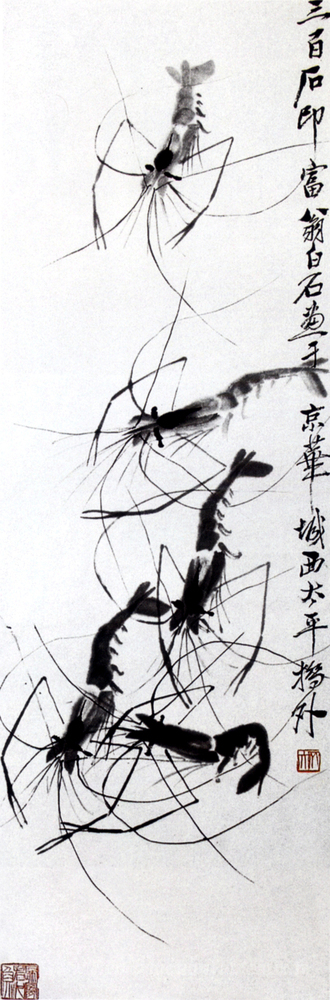 三百石印富翁白石画于京華城西太平橋外